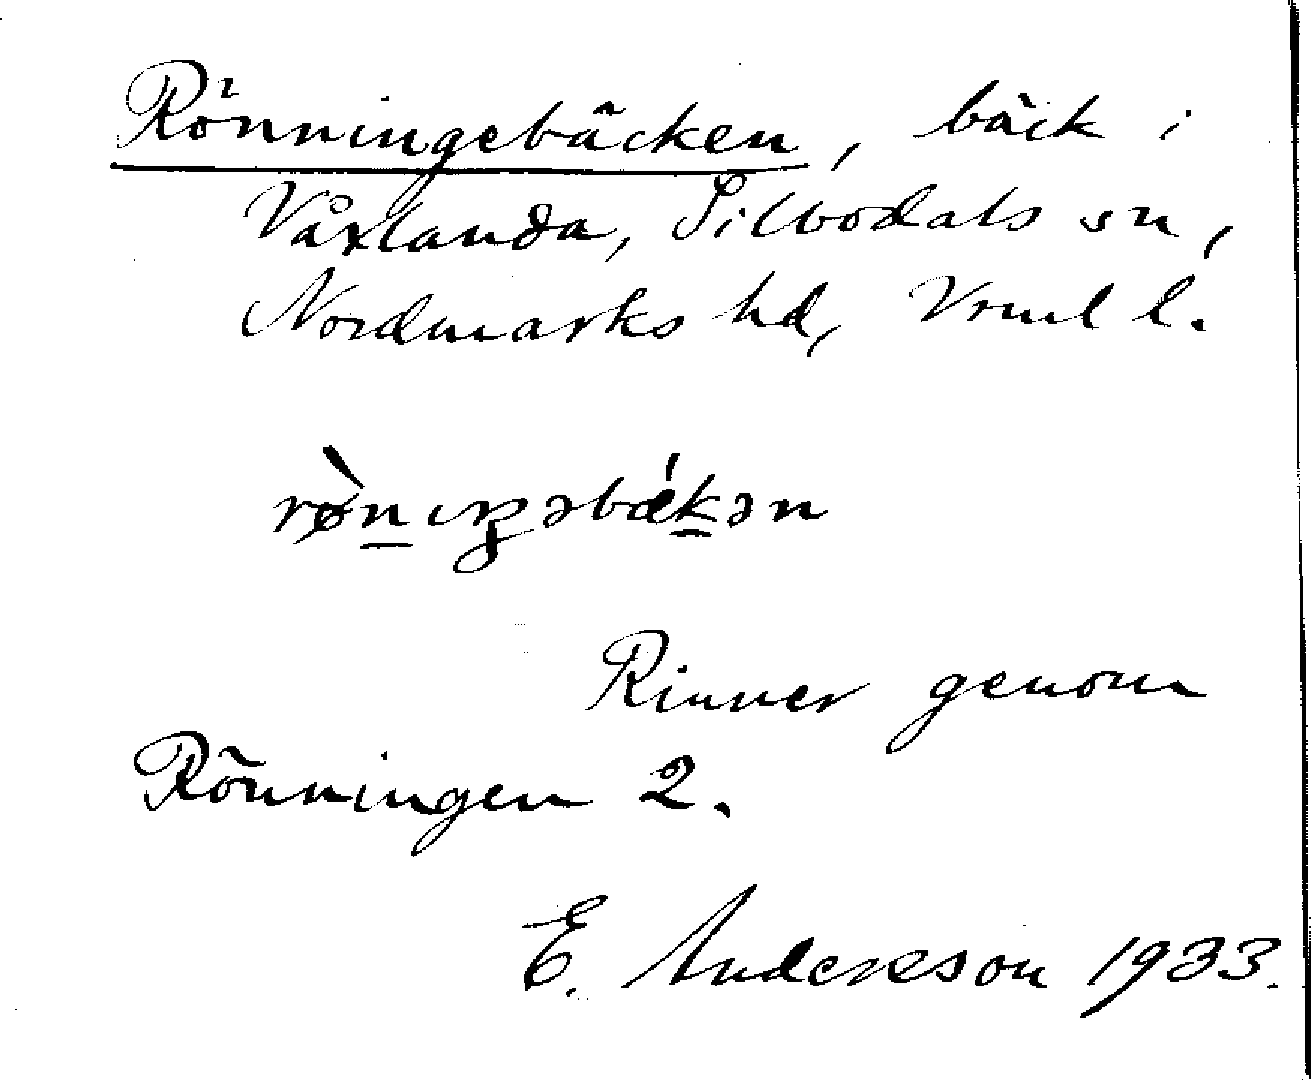 Rönningebäcken, bäck i
Våxlanda, Silbodals sn,
Nordmarks hd, Vrml l.
rø̀nıŋəbǽkən
Rinner genom
Rönningen 2.
E. Andersson 1933.